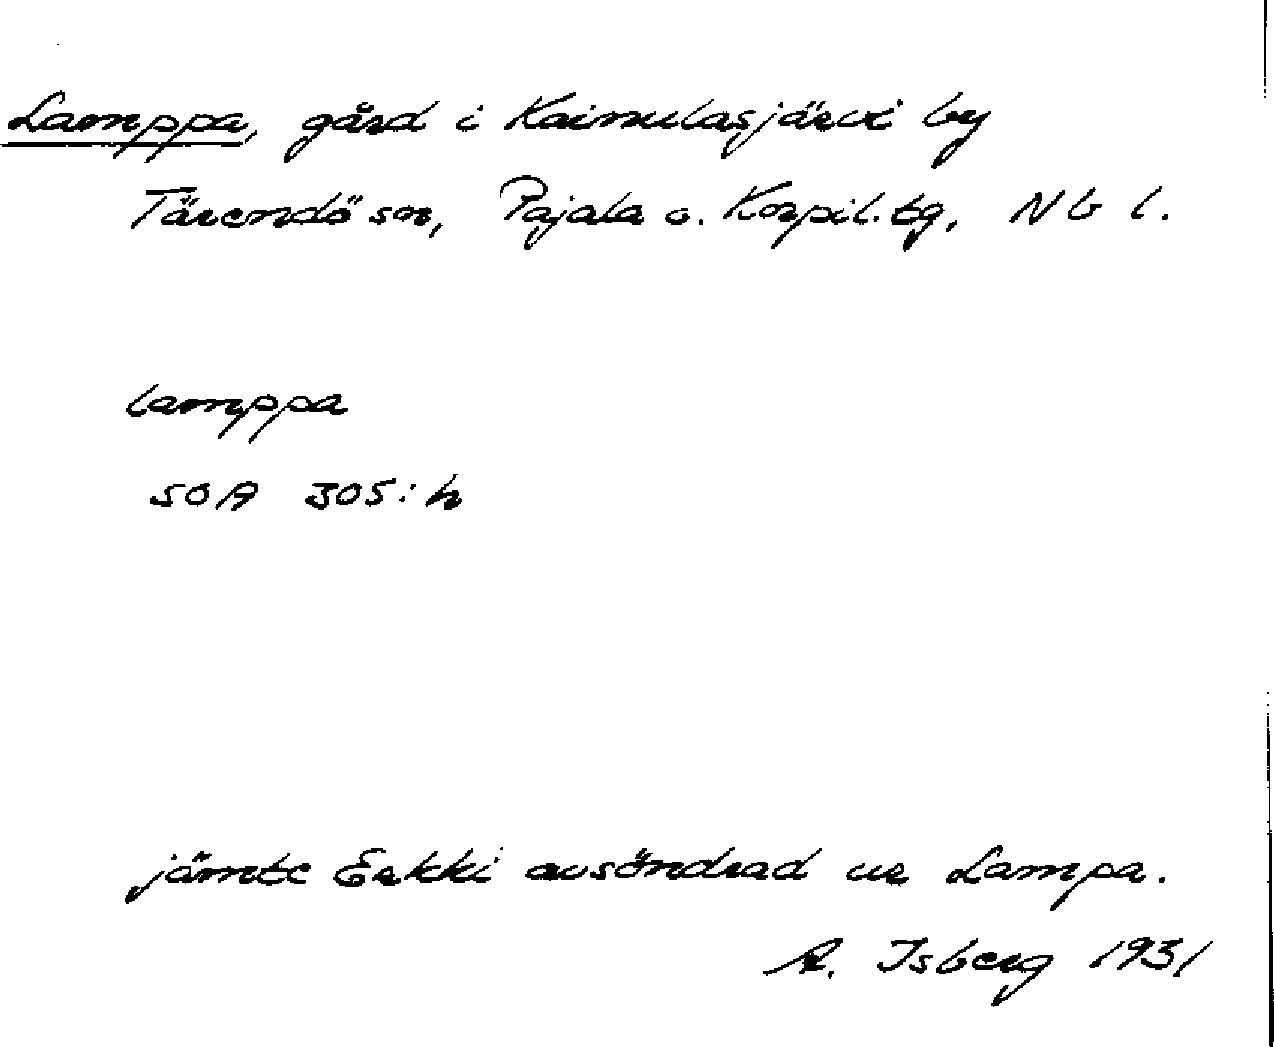 Lamppa, gård i Kainulasjärvi by
Tärendö sn, Pajala o. Korpil. tg, Nb l.
lamppa
SOA 305: h
jämte Erkki avsöndrad ur Lampa.
A. Isberg 1931